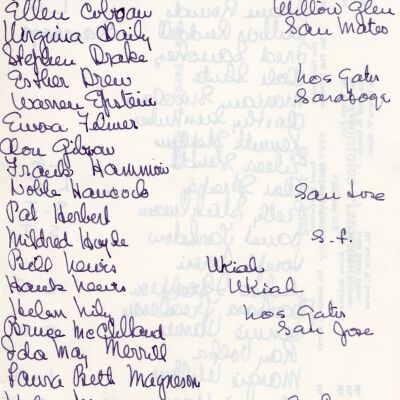 Ellen Cobean Willow Glen
Virginia Daily San Mateo
Stephen Drake
Esther Drew Los Gatos
Warren Epstein Saratoga
Emma
Don Gibson
Frank Hammon
Noble Hancock San Jose
Pat Herbert
Mildred Hoyde S.F.
Bill Lewis Ukiah
Hank Lewis Ukiah
Helen Los Gatos
Bruce McClelland San Jose
Ida May Merrill
Laura Beth Magneson